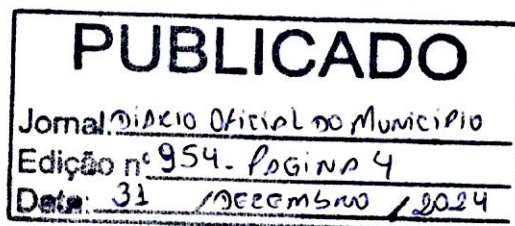 PUBLICADO
Jornal: DIÁRIO OFICIAL DO MUNICÍPIO
Edição nº 954 - PAGINA 4
Data: 31 / DEZEMBRO / 2024